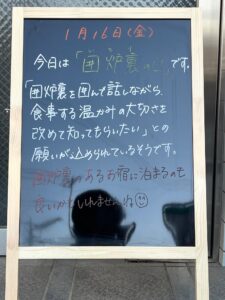 1月16日(金)
今日は「囲炉裏の日」です。
「囲炉裏を囲んで話しながら、
食事する温かみの大切さを
改めて知ってもらいたい」との
願いが込められているそうです。
囲炉裏のあるお宿に泊まるのも
良いかもしれませんね